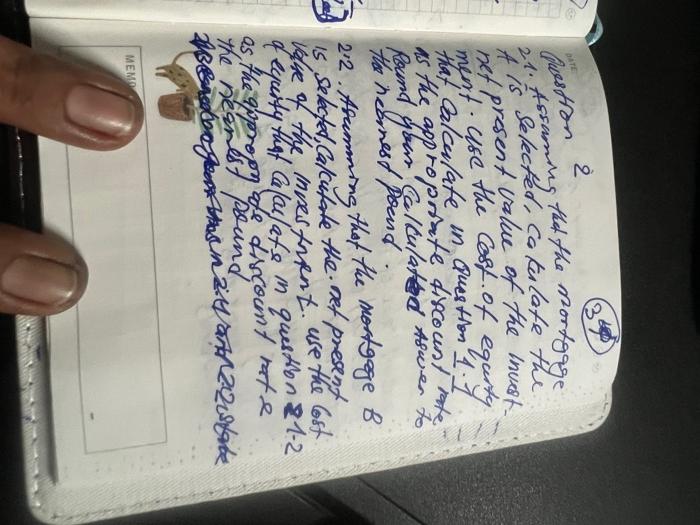 DATE:
34
Question 2
2.1. Assuming that the mortgage
A is selected, calculate the
net present value of the invest-
ment. use the cost of equity
that calculate in question 1.1
as the appropriate discount rate
Round your calculated answer to
the nearest pound.
2.2 Assumming that the mortgage B
is selected calculate the net present
value of the investment. use the cost
of equity that calculate in question 1.2
as the appropriate discount rate
the nearest pound
MEMO